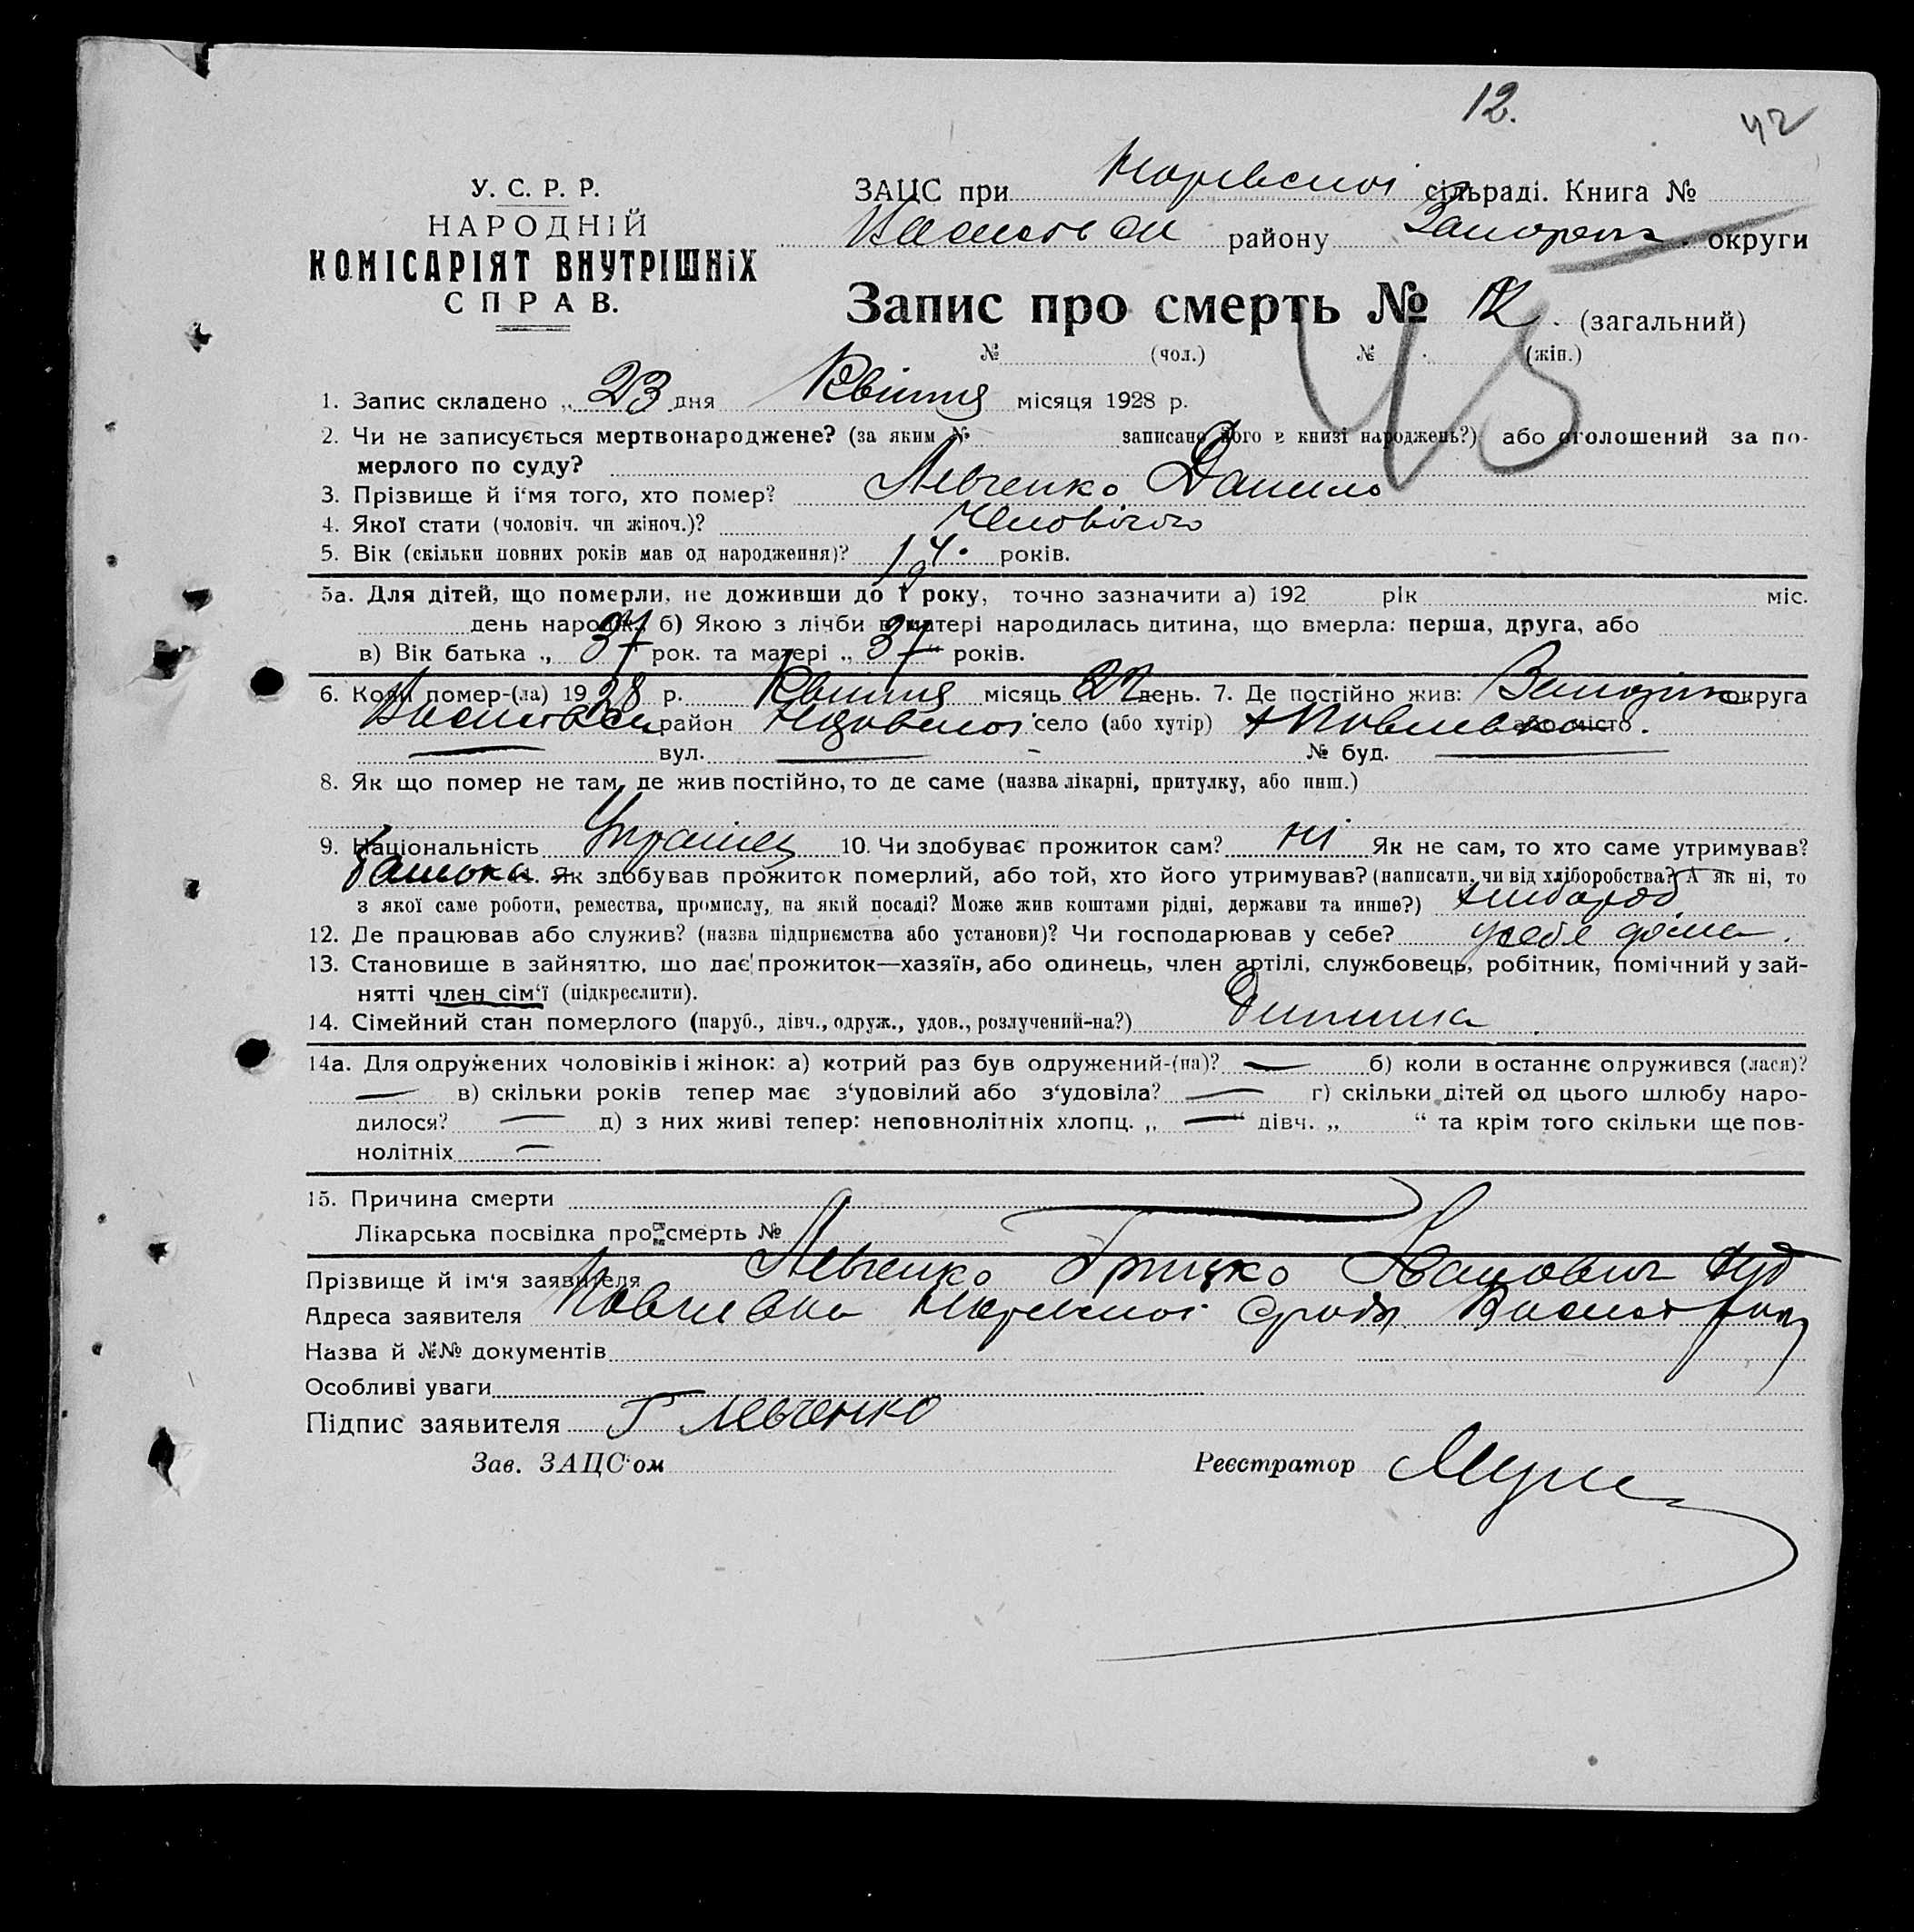 12.
42
У. С. Р. Р.
НАРОДНІЙ
КОМІСАРІЯТ ВНУТРІШНІХ
СПРАВ.
ЗАЦС при сільраді. Книга №
району округи
Запис про смерть № 12. (загальний)
№ (чол.) № (жін.)
45
1. Запис складено „ 23 дня Квітня місяця 1928 р.
2. Чи не записується мертвонароджене? (за яким № записано його в книзі народжень?) або оголошений за по-
мерлого по суду?
3. Прізвище й ім'я того, хто помер? Левченко Данило
4. Якої стати (чоловіч. чи жіноч.)? Чоловічого
5. Вік (скільки повних років мав од народження)? років.
5а. Для дітей, що померли, не доживши до 1 року, точно зазначити а) 192 рік міс.
день народж. б) Якою з лічби в матері народилась дитина, що вмерла: перша, друга, або
в) Вік батька „ 37 рок. та матері „ 37 “ років.
6. Коли помер-(ла) 1928 р. Квітня місяць 22 день. 7. Де постійно жив: округа
район село (або хутір) або місто
вул. — № буд. —
8. Як що помер не там, де жив постійно, то де саме (назва лікарні, притулку, або инш.)
9. Національність Українец 10. Чи здобуває прожиток сам? ні Як не сам, то хто саме утримував?
батько. Як здобував прожиток померлий, або той, хто його утримував? (написати, чи від хліборобства? А як ні, то
з якої саме роботи, ремества, промислу, на якій посаді? Може жив коштами рідні, держави та инше?) хлибороб
12. Де працював або служив? (назва підприємства або установи)? Чи господарював у себе? у себе дома.
13. Становище в зайняттю, що дає прожиток—хазяїн, або одинець, член артілі, службовець, робітник, помічний у зай-
нятті член сім'ї (підкреслити).
14. Сімейний стан померлого (паруб., дівч., одруж., удов., розлучений-на?) Дитина
14а. Для одружених чоловіків і жінок: а) котрий раз був одружений-(на)? — б) коли востаннє одружився (лася)?
— в) скільки років тепер має з'удовілий або з'удовіла? — г) скільки дітей од цього шлюбу наро-
дилося? — д) з них живі тепер: неповнолітніх хлопц. „ — “ дівч. „ “ та крім того скільки ще пов-
нолітніх —
15. Причина смерти
Лікарська посвідка про смерть №
Прізвище й ім'я заявителя Левченко Грицко Іванович
Адреса заявителя Павлівка
Назва й №№ документів
Особливі уваги
Підпис заявителя Г Левченко
Зав. ЗАЦС'ом Реєстратор